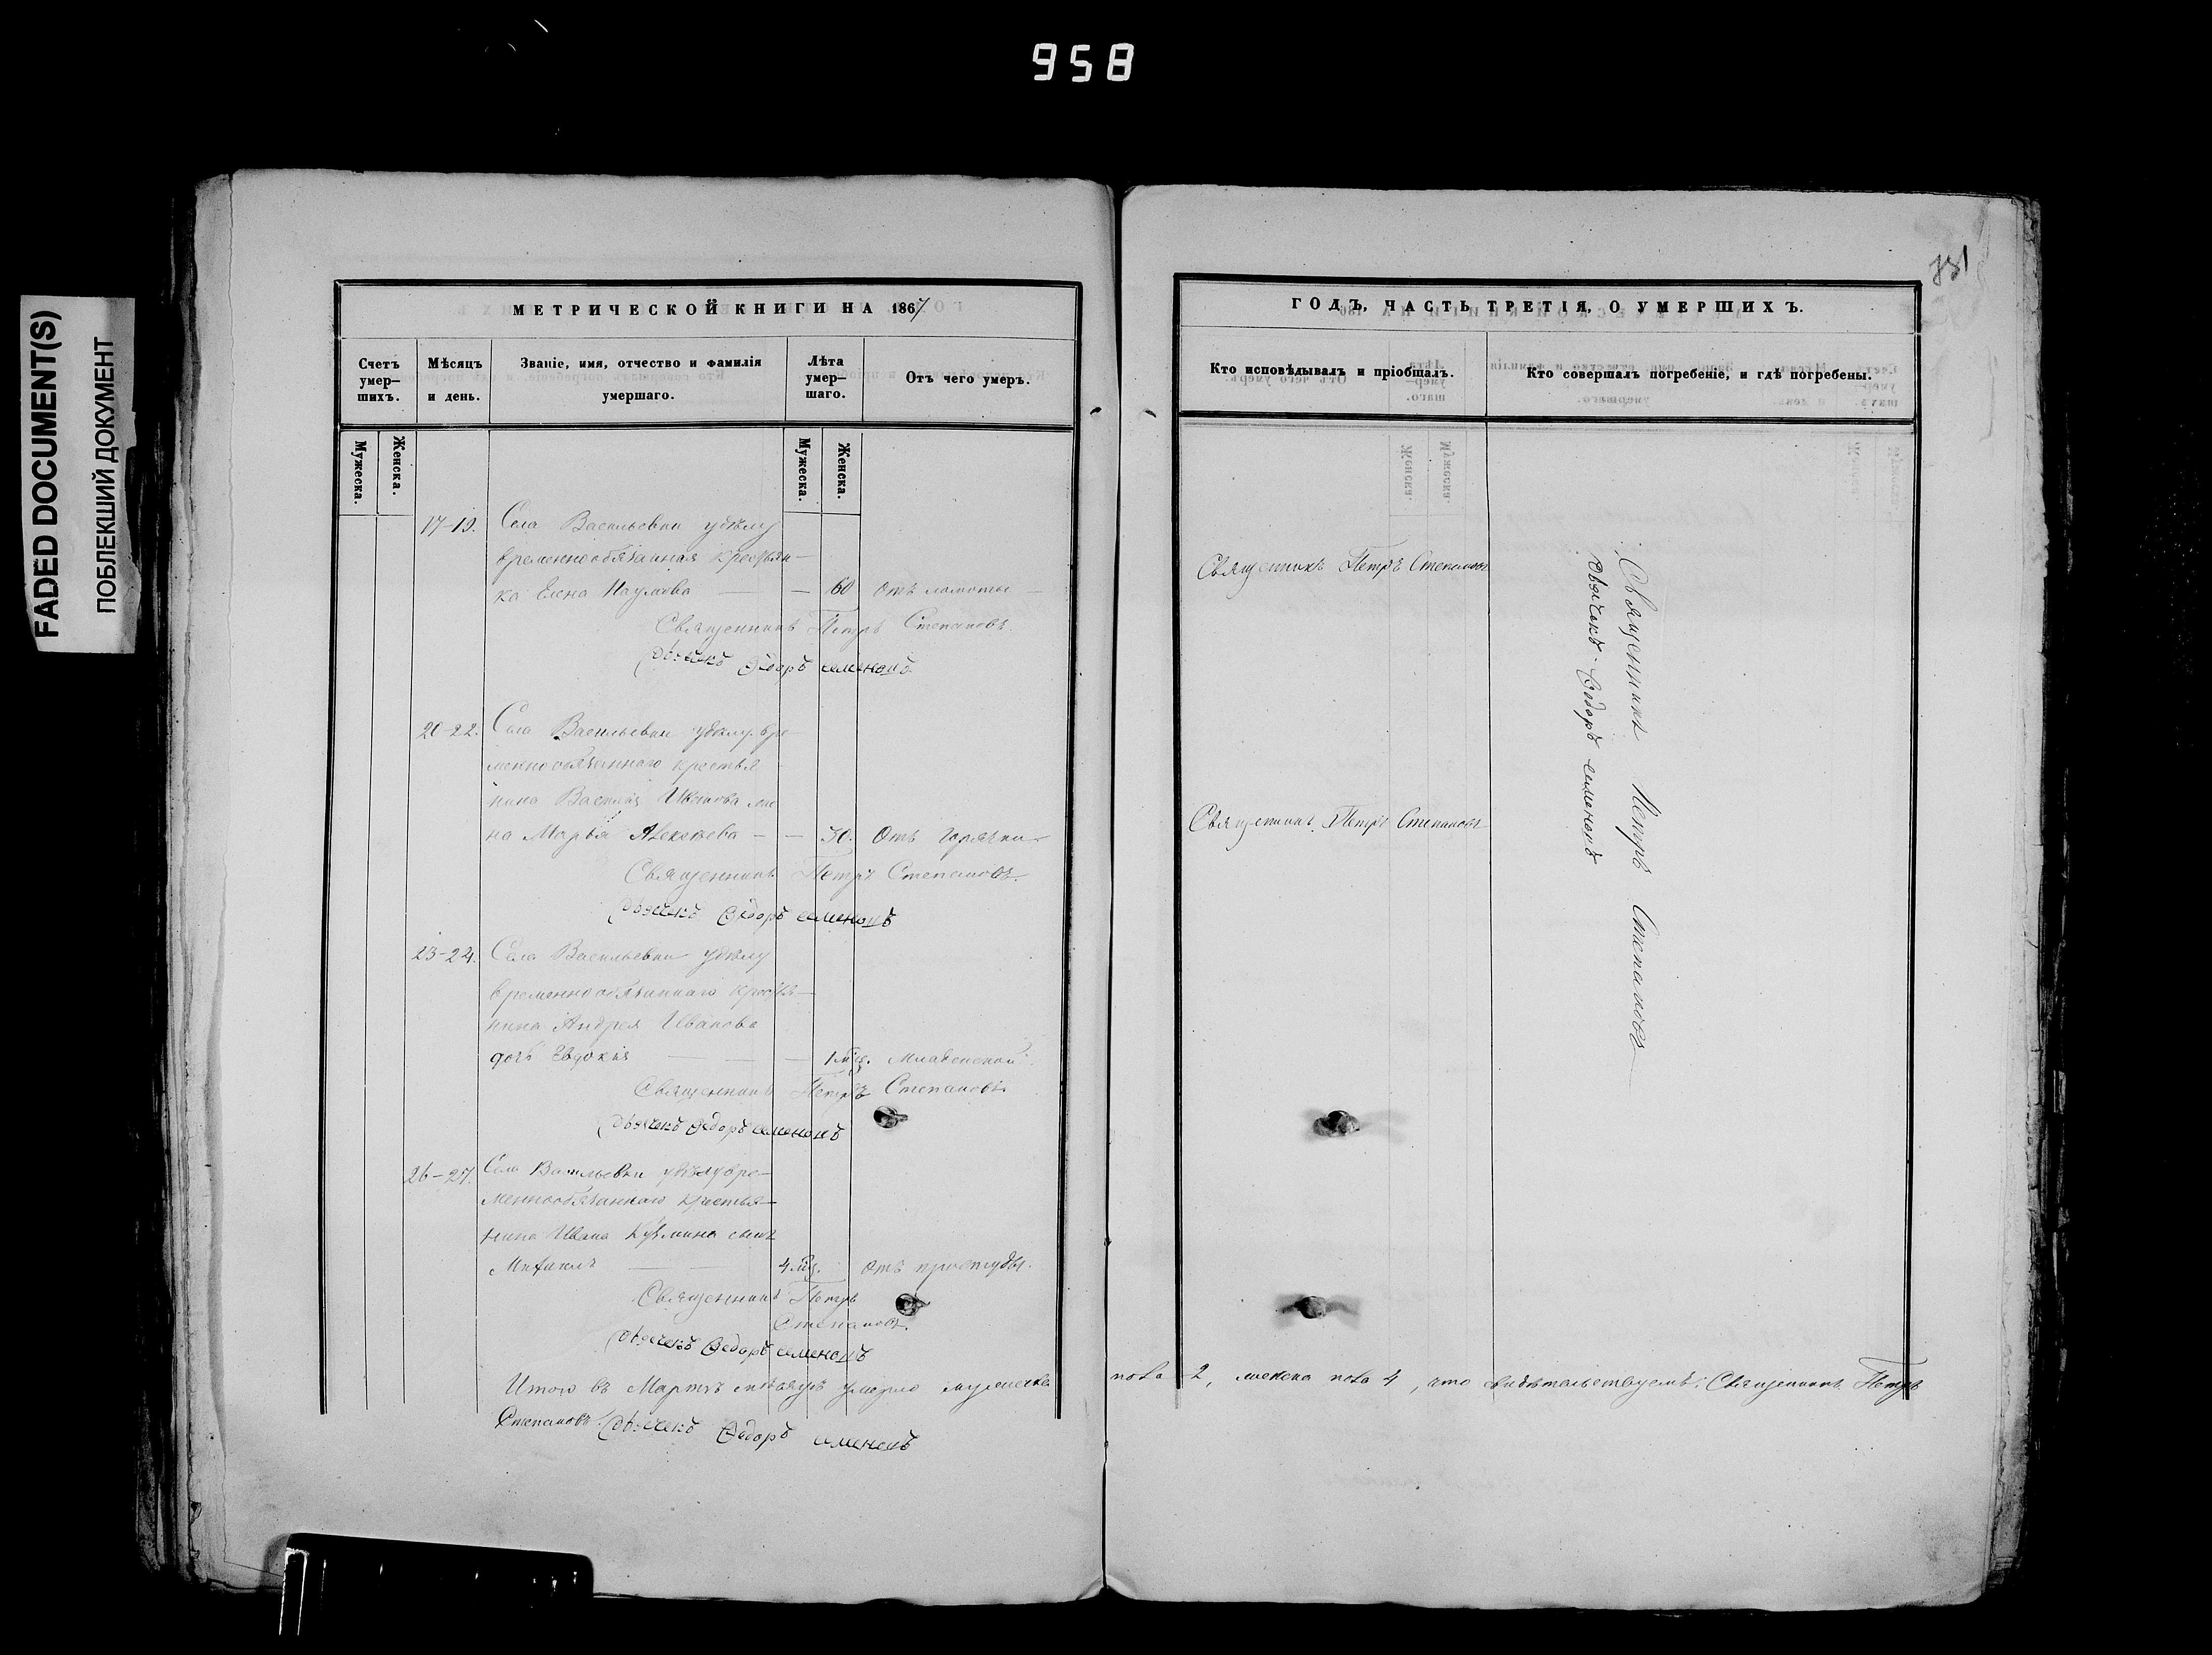 958
FADED DOCUMENT(S)
ПОБЛЕКШИЙ ДОКУМЕНТ
МЕТРИЧЕСКОЙ КНИГИ НА 1867
Счетъ умер-
шихъ.
Мѣсяцъ
и день.
Званіе, имя, отчество и фамилія
умершаго.
Лѣта
умер-
шаго.
Отъ чего умеръ.
Мужеска.
Женска.
Мужеска.
Женска.
17-19. Села Васильевки
временнообязанная крестьян-
ка Елена Наумова — — 60 отъ ломоты
Священникъ Петръ Степановъ.
Дьячекъ Ѳедоръ
20-22. Села Васильевки вре-
меннообязаннаго крестья
нина Василія Иванова же
на Марья Алексѣева — — 30. отъ горячки
Священникъ Петръ Степановъ.
Дьячекъ Ѳедоръ
23-24. Села Васильевки
временнообязаннаго крестья-
нина Андрея Иванова
дочь Евдокія — — — 1 мѣс. младенской
Священникъ Петръ Степановъ.
Дьячекъ Ѳедоръ
26-27. Села Васильевки вре-
меннообязаннаго крестья-
нина Ивана Кузмина сынъ
Михаилъ — — 4 мѣс. отъ простуды.
Священникъ Петръ
Степановъ.
Дьячекъ Ѳедоръ
Итого въ Мартѣ мѣсяцѣ умерло мужеска пола 2, женска пола 4, что свидѣтельствуемъ: Священникъ Петръ
Степановъ. Дьячекъ Ѳедоръ
ГОДЪ, ЧАСТЬ ТРЕТІЯ, О УМЕРШИХЪ.
Кто исповѣдывалъ и пріобщалъ.
Кто совершалъ погребеніе, и гдѣ погребены.
Священникъ Петръ Степановъ
Священникъ Петръ Степановъ
Священникъ Петръ Степановъ
Дьячекъ Ѳедоръ